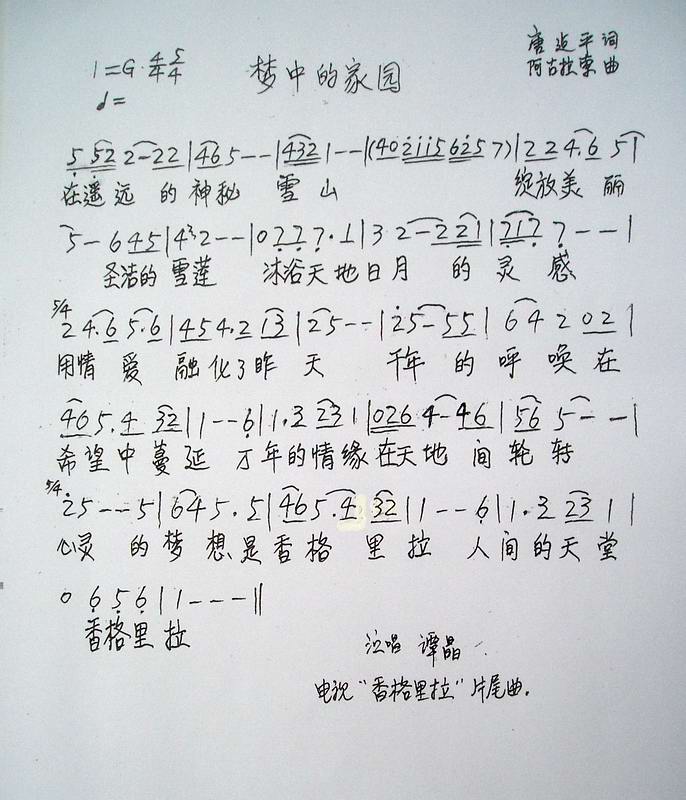 1=G 4/4 5/4 梦中的家园 唐 平词
阿古拉泰 曲
5 52 2-22|46 5--|432 1--|(40 2115 6257)|22 4.6 5 1|
在遥远 的神秘 雪山 绽放美丽
5-6 45|4 3 2--|0 7 7 7.1|3 2-2 21|717 7--|
圣洁的 雪莲 沐浴天地日月 的灵感
5/4 2 4.6 5.6|454.2 13|25--|25-55|6 4 2 02|
用情爱 融化了昨天 千年 的呼唤在
465.4 32|1--6|1.3 231|026 4-46|56 5--|
希望中蔓延 万年的情缘在天地 间轮转
5/4 25--5|645.5|465.4 32|1--6|1.3 231|
心灵 的梦想是香格里拉 人间的天堂
0 6 5 6|1---||
香格里拉
演唱 谭晶
电视“香格里拉”片尾曲.